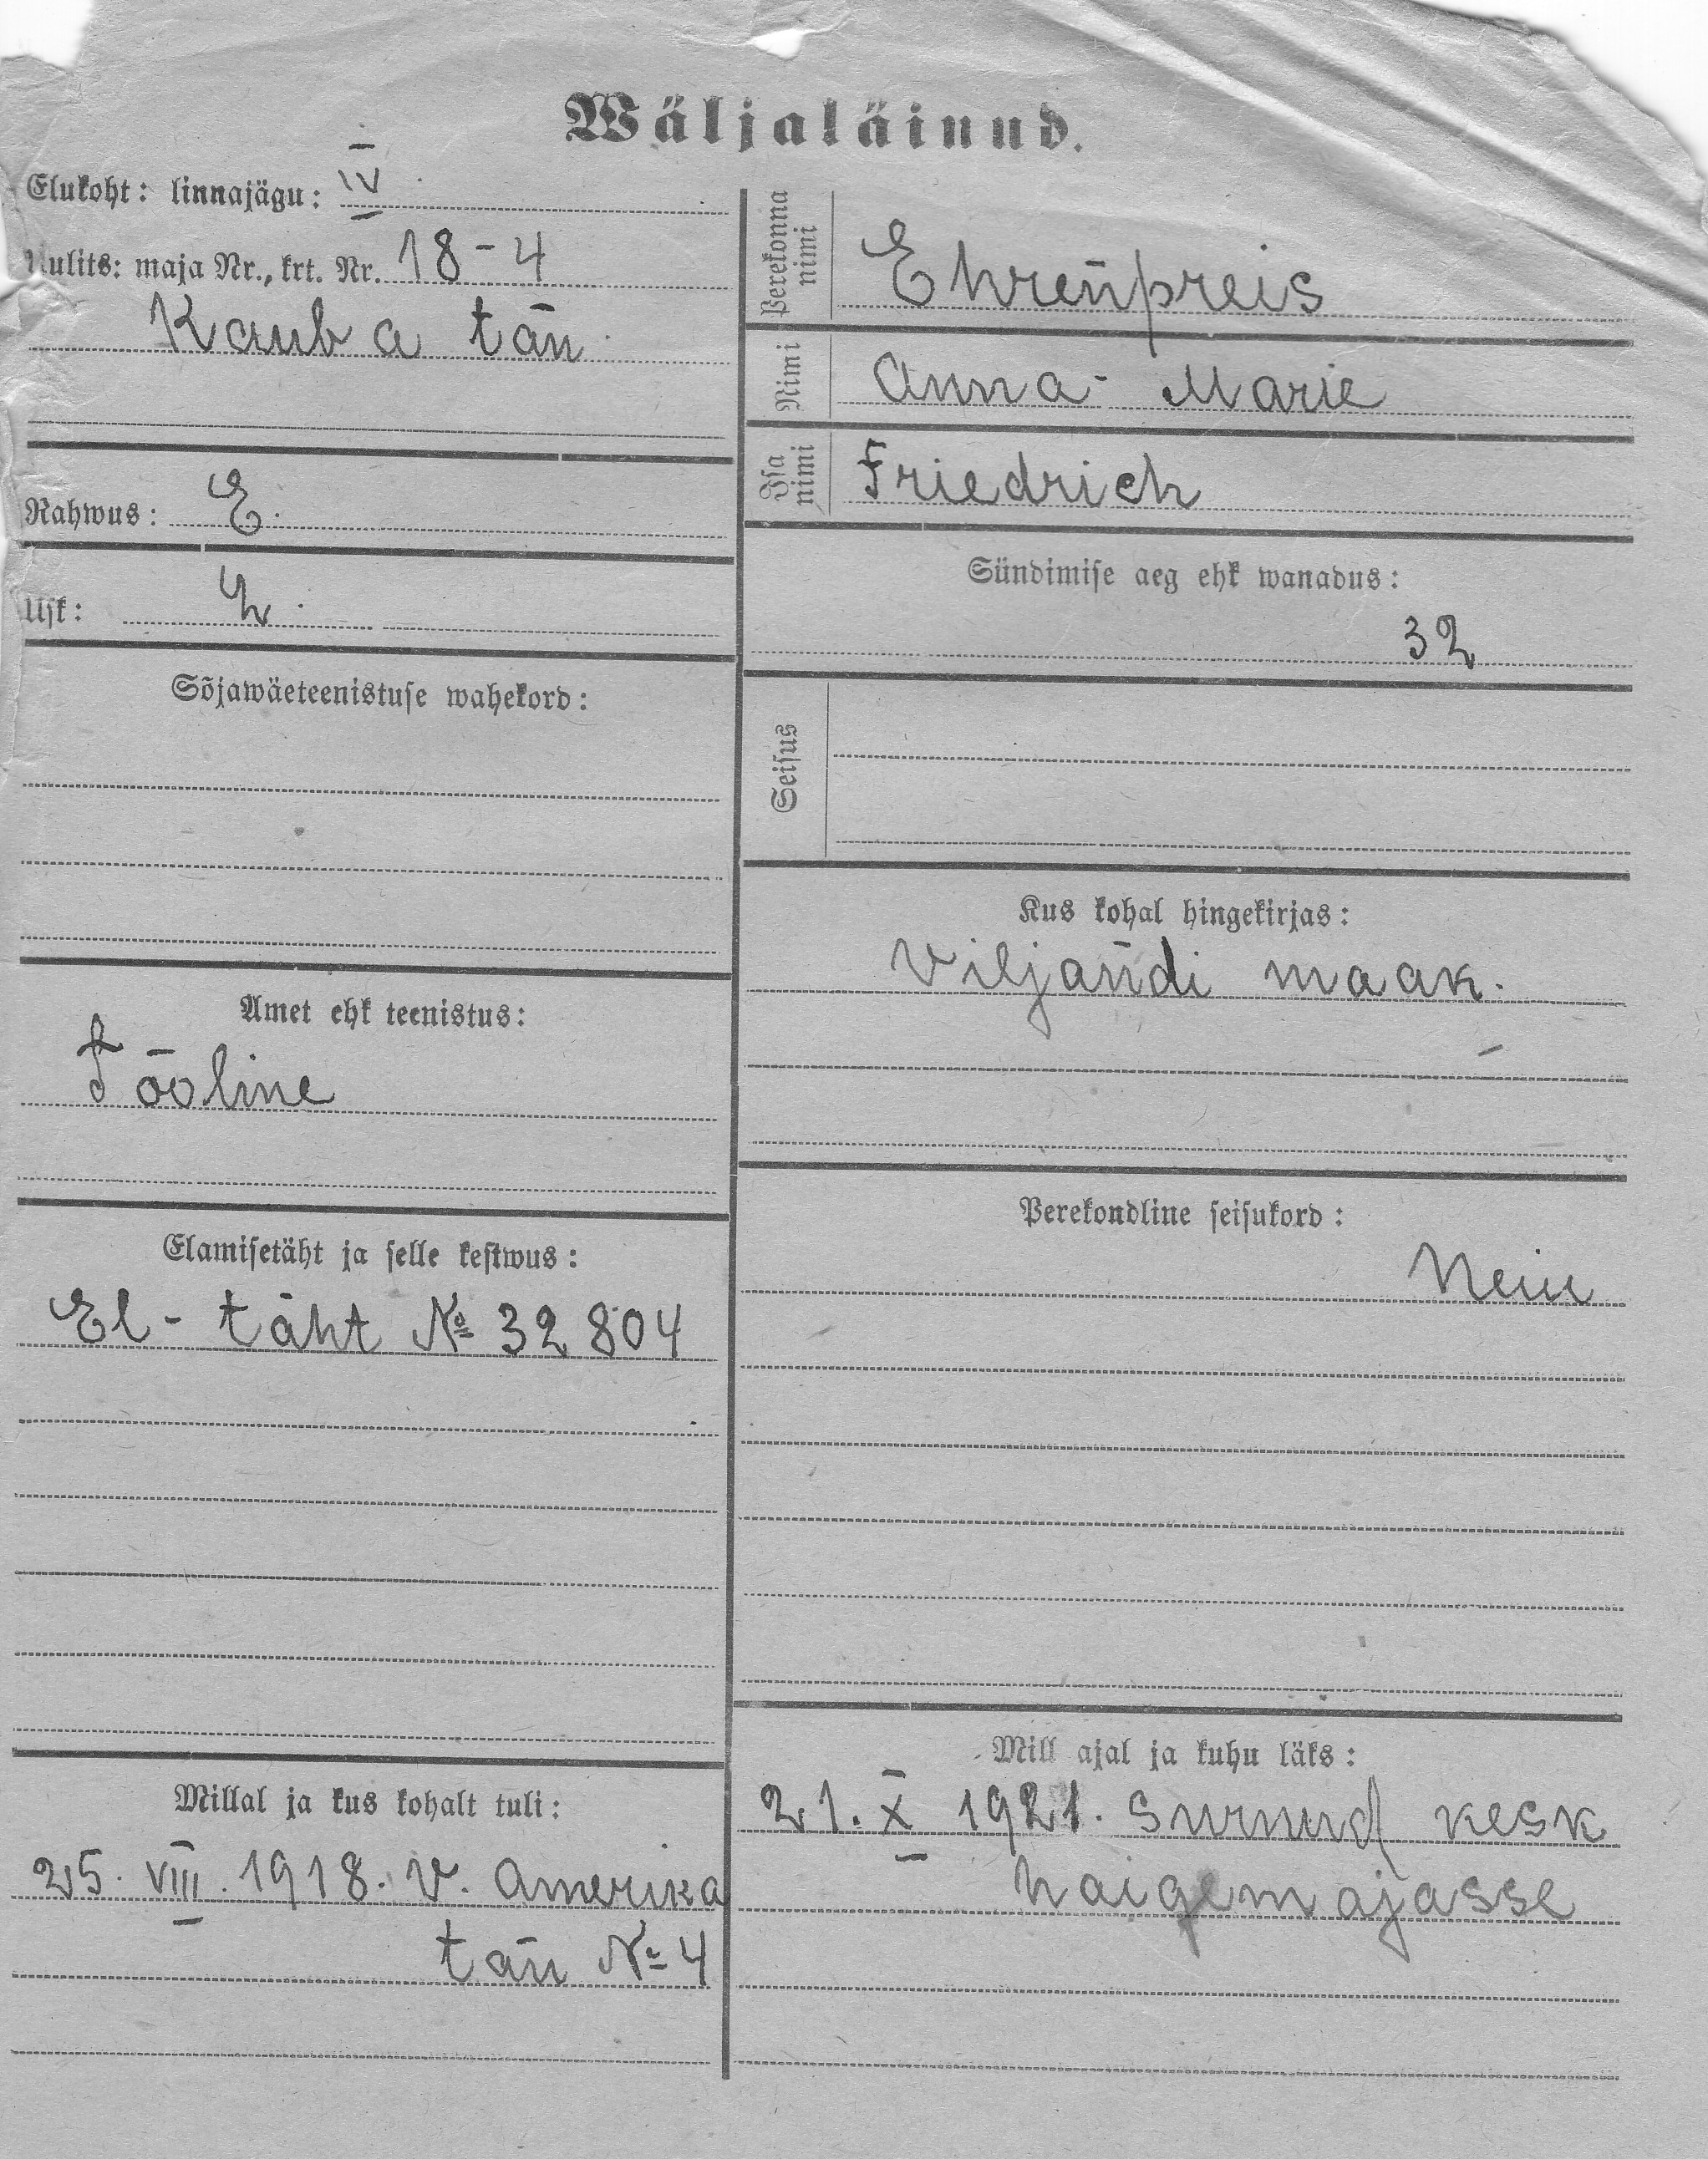 Wäljaläinud.
Elukoht: linnajägu: IV
Uulits: maja Nr., krt. Nr. 18-4
Kauba tän
Rahwus: E.
Usk: L.
Sõjawäeteenistuse wahekord:
Amet ehk teenistus:
Tööline
Elamisetäht ja selle kestwus:
El-täht № 32804
Millal ja kus kohalt tuli:
25. VIII. 1918. V. Amerika
tän № 4
Perekonna nimi Ehrenpreis
Nimi Anna-Marie
Isa nimi Friedrich
Sündimise aeg ehk wanadus:
32
Seisus
Kus kohal hingekirjas:
Viljandi maak.
Perekondline seisukord:
Neiu
Mill ajal ja kuhu läks:
21. X 1921. surnud kesk
haigemajasse